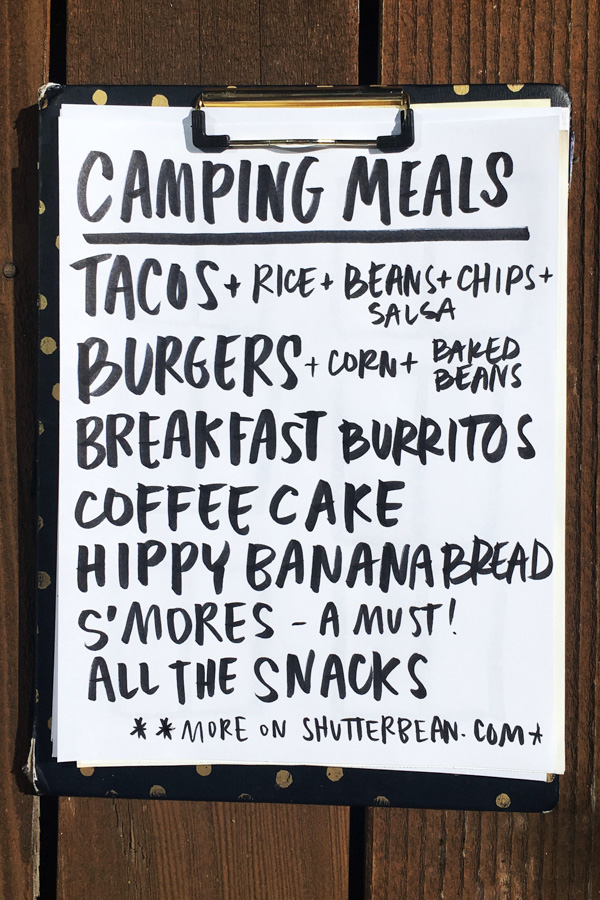 CAMPING MEALS
TACOS + RICE + BEANS + CHIPS +
SALSA
BURGERS + CORN + BAKED
BEANS
BREAKFAST BURRITOS
COFFEE CAKE
HIPPY BANANA BREAD
S'MORES - A MUST!
ALL THE SNACKS
**MORE ON SHUTTERBEAN.COM*